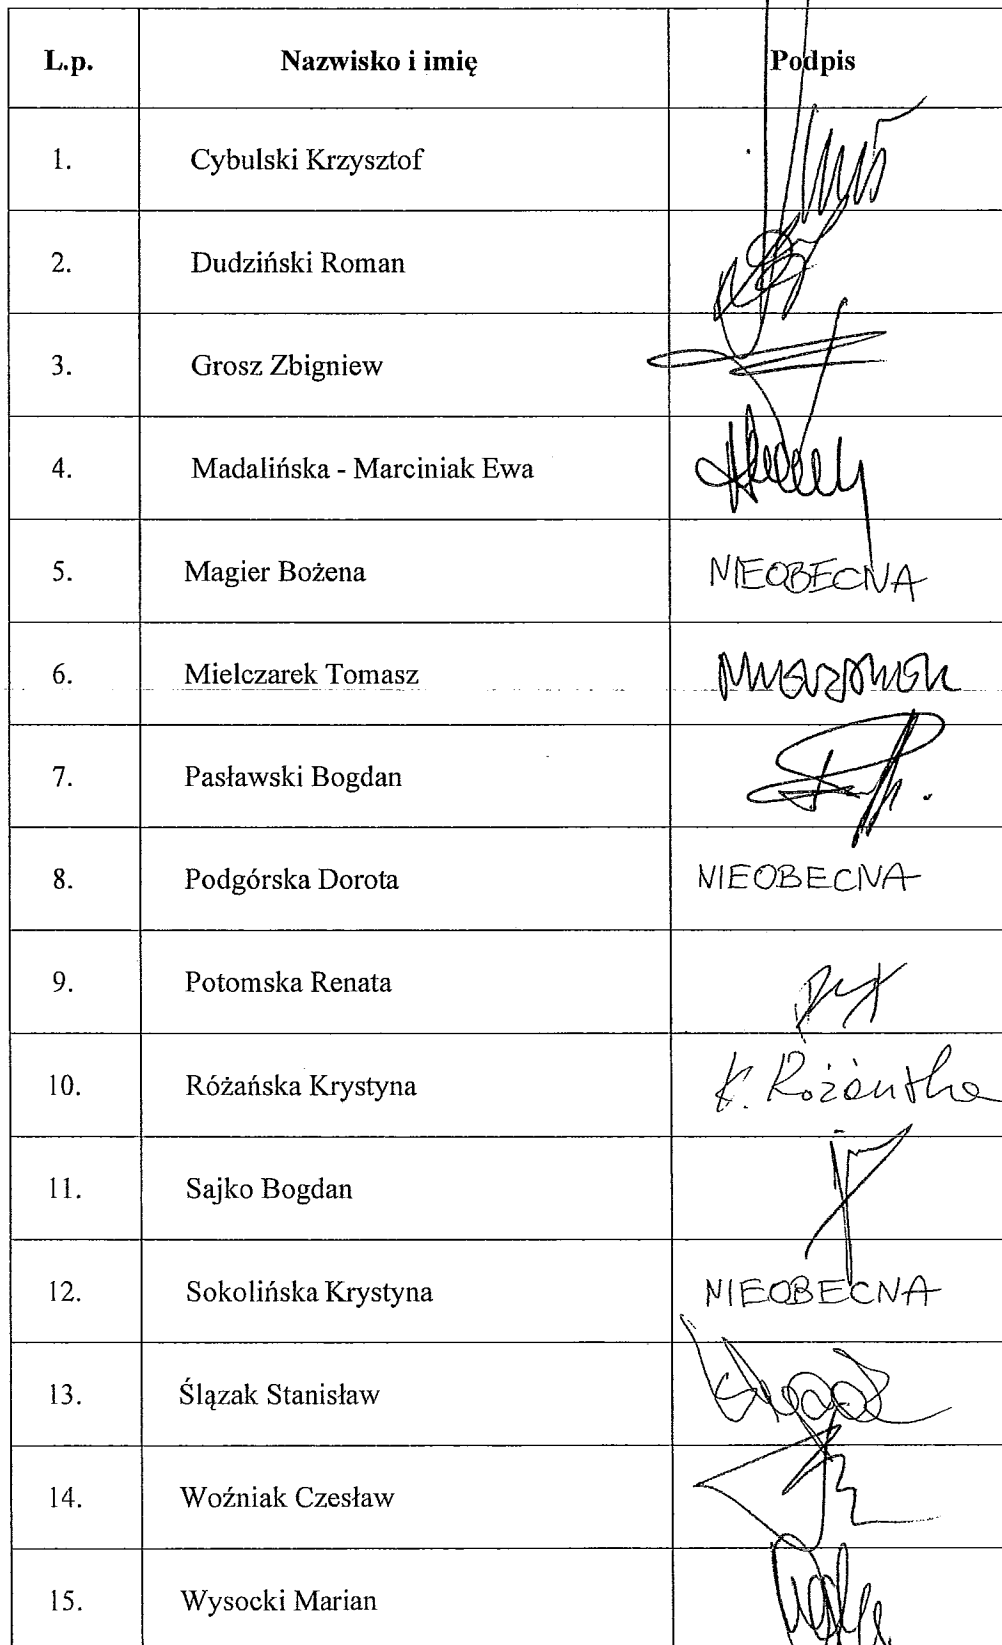 L.p. Nazwisko i imię Podpis
1. Cybulski Krzysztof
2. Dudziński Roman
3. Grosz Zbigniew
4. Madalińska - Marciniak Ewa
5. Magier Bożena NIEOBECNA
6. Mielczarek Tomasz
7. Pasławski Bogdan
8. Podgórska Dorota NIEOBECNA
9. Potomska Renata
10. Różańska Krystyna K. Różańska
11. Sajko Bogdan
12. Sokolińska Krystyna NIEOBECNA
13. Ślązak Stanisław
14. Woźniak Czesław
15. Wysocki Marian